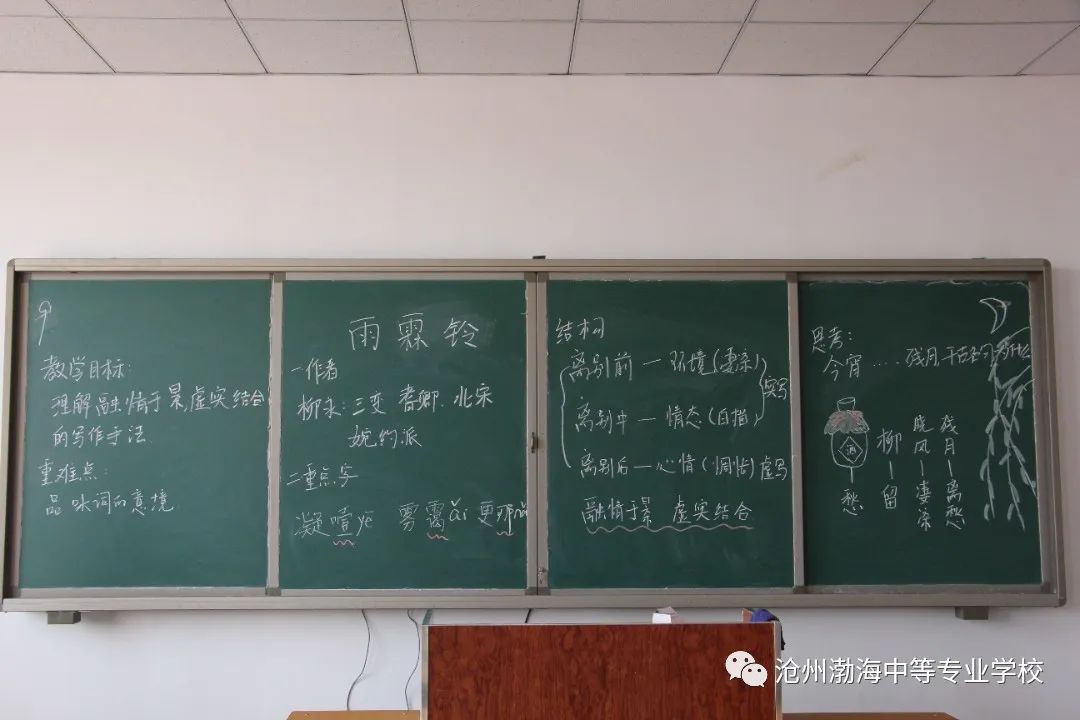 9
教学目标:
理解融情于景,虚实结合
的写作手法
重难点:
品味词的意境
雨霖铃
一作者
柳永:三变 耆卿.北宋
婉约派
二重点字
凝噎yē 雾霭ǎi 更那
结构
离别前—环境(凄凉)
离别中—情态(白描)
实写
离别后—心情(惆怅)虚写
融情于景 虚实结合
思考:
今宵……残月千古名句为什么
酒
愁
柳—留
晓风—凄凉
残月—离愁
沧州渤海中等专业学校